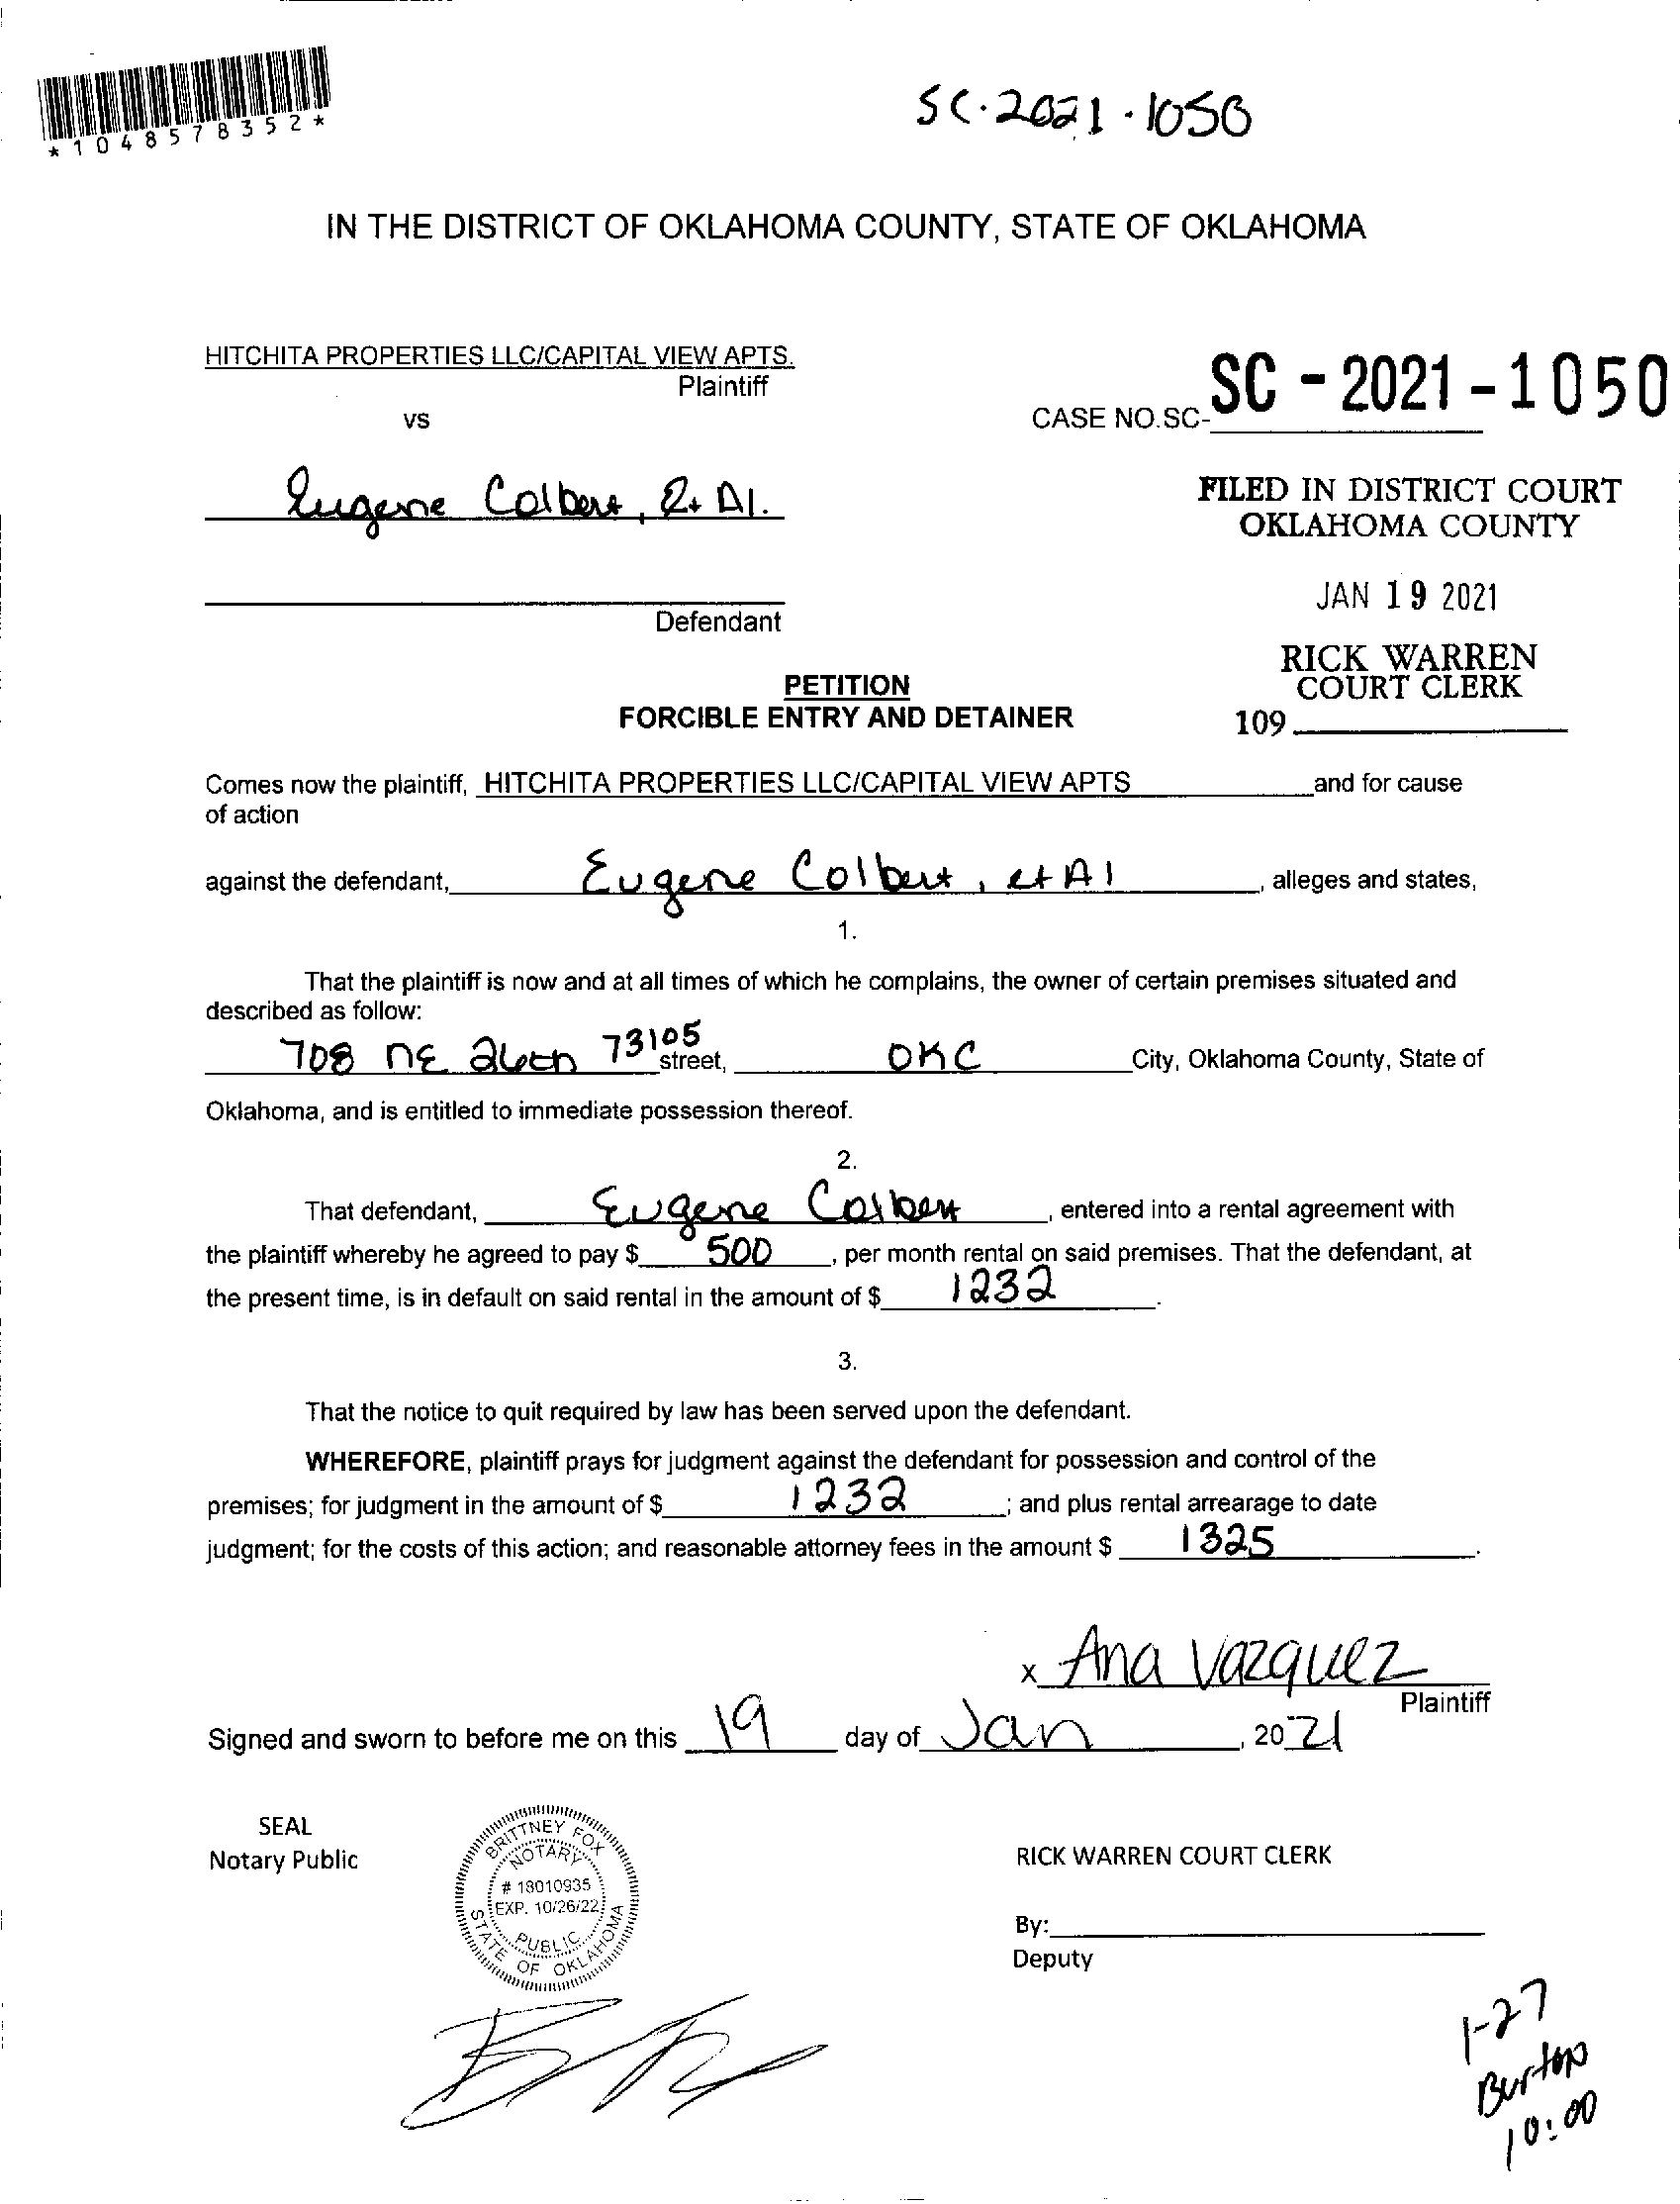 *1048578352*
SC·2021·1050
IN THE DISTRICT OF OKLAHOMA COUNTY, STATE OF OKLAHOMA
HITCHITA PROPERTIES LLC/CAPITAL VIEW APTS.
Plaintiff
vs
CASE NO.SC- SC - 2021 - 1050
Eugene Colbert, Et Al.
FILED IN DISTRICT COURT
OKLAHOMA COUNTY
JAN 19 2021
Defendant
RICK WARREN
COURT CLERK
109
PETITION
FORCIBLE ENTRY AND DETAINER
Comes now the plaintiff, HITCHITA PROPERTIES LLC/CAPITAL VIEW APTS and for cause
of action
against the defendant, Eugene Colbert, et Al, alleges and states,
1.
That the plaintiff is now and at all times of which he complains, the owner of certain premises situated and
described as follow:
708 NE 26th 73105 street, OKC City, Oklahoma County, State of
Oklahoma, and is entitled to immediate possession thereof.
2.
That defendant, Eugene Colbert, entered into a rental agreement with
the plaintiff whereby he agreed to pay $ 500, per month rental on said premises. That the defendant, at
the present time, is in default on said rental in the amount of $ 1232.
3.
That the notice to quit required by law has been served upon the defendant.
WHEREFORE, plaintiff prays for judgment against the defendant for possession and control of the
premises; for judgment in the amount of $ 1232; and plus rental arrearage to date
judgment; for the costs of this action; and reasonable attorney fees in the amount $ 1325.
x Ana Vazquez
Plaintiff
Signed and sworn to before me on this 19 day of Jan, 2021
SEAL
Notary Public
BRITTNEY FOX
NOTARY
# 18010935
EXP. 10/26/22
PUBLIC
STATE OF OKLAHOMA
RICK WARREN COURT CLERK
By:
Deputy
1-27
Burton
10:00